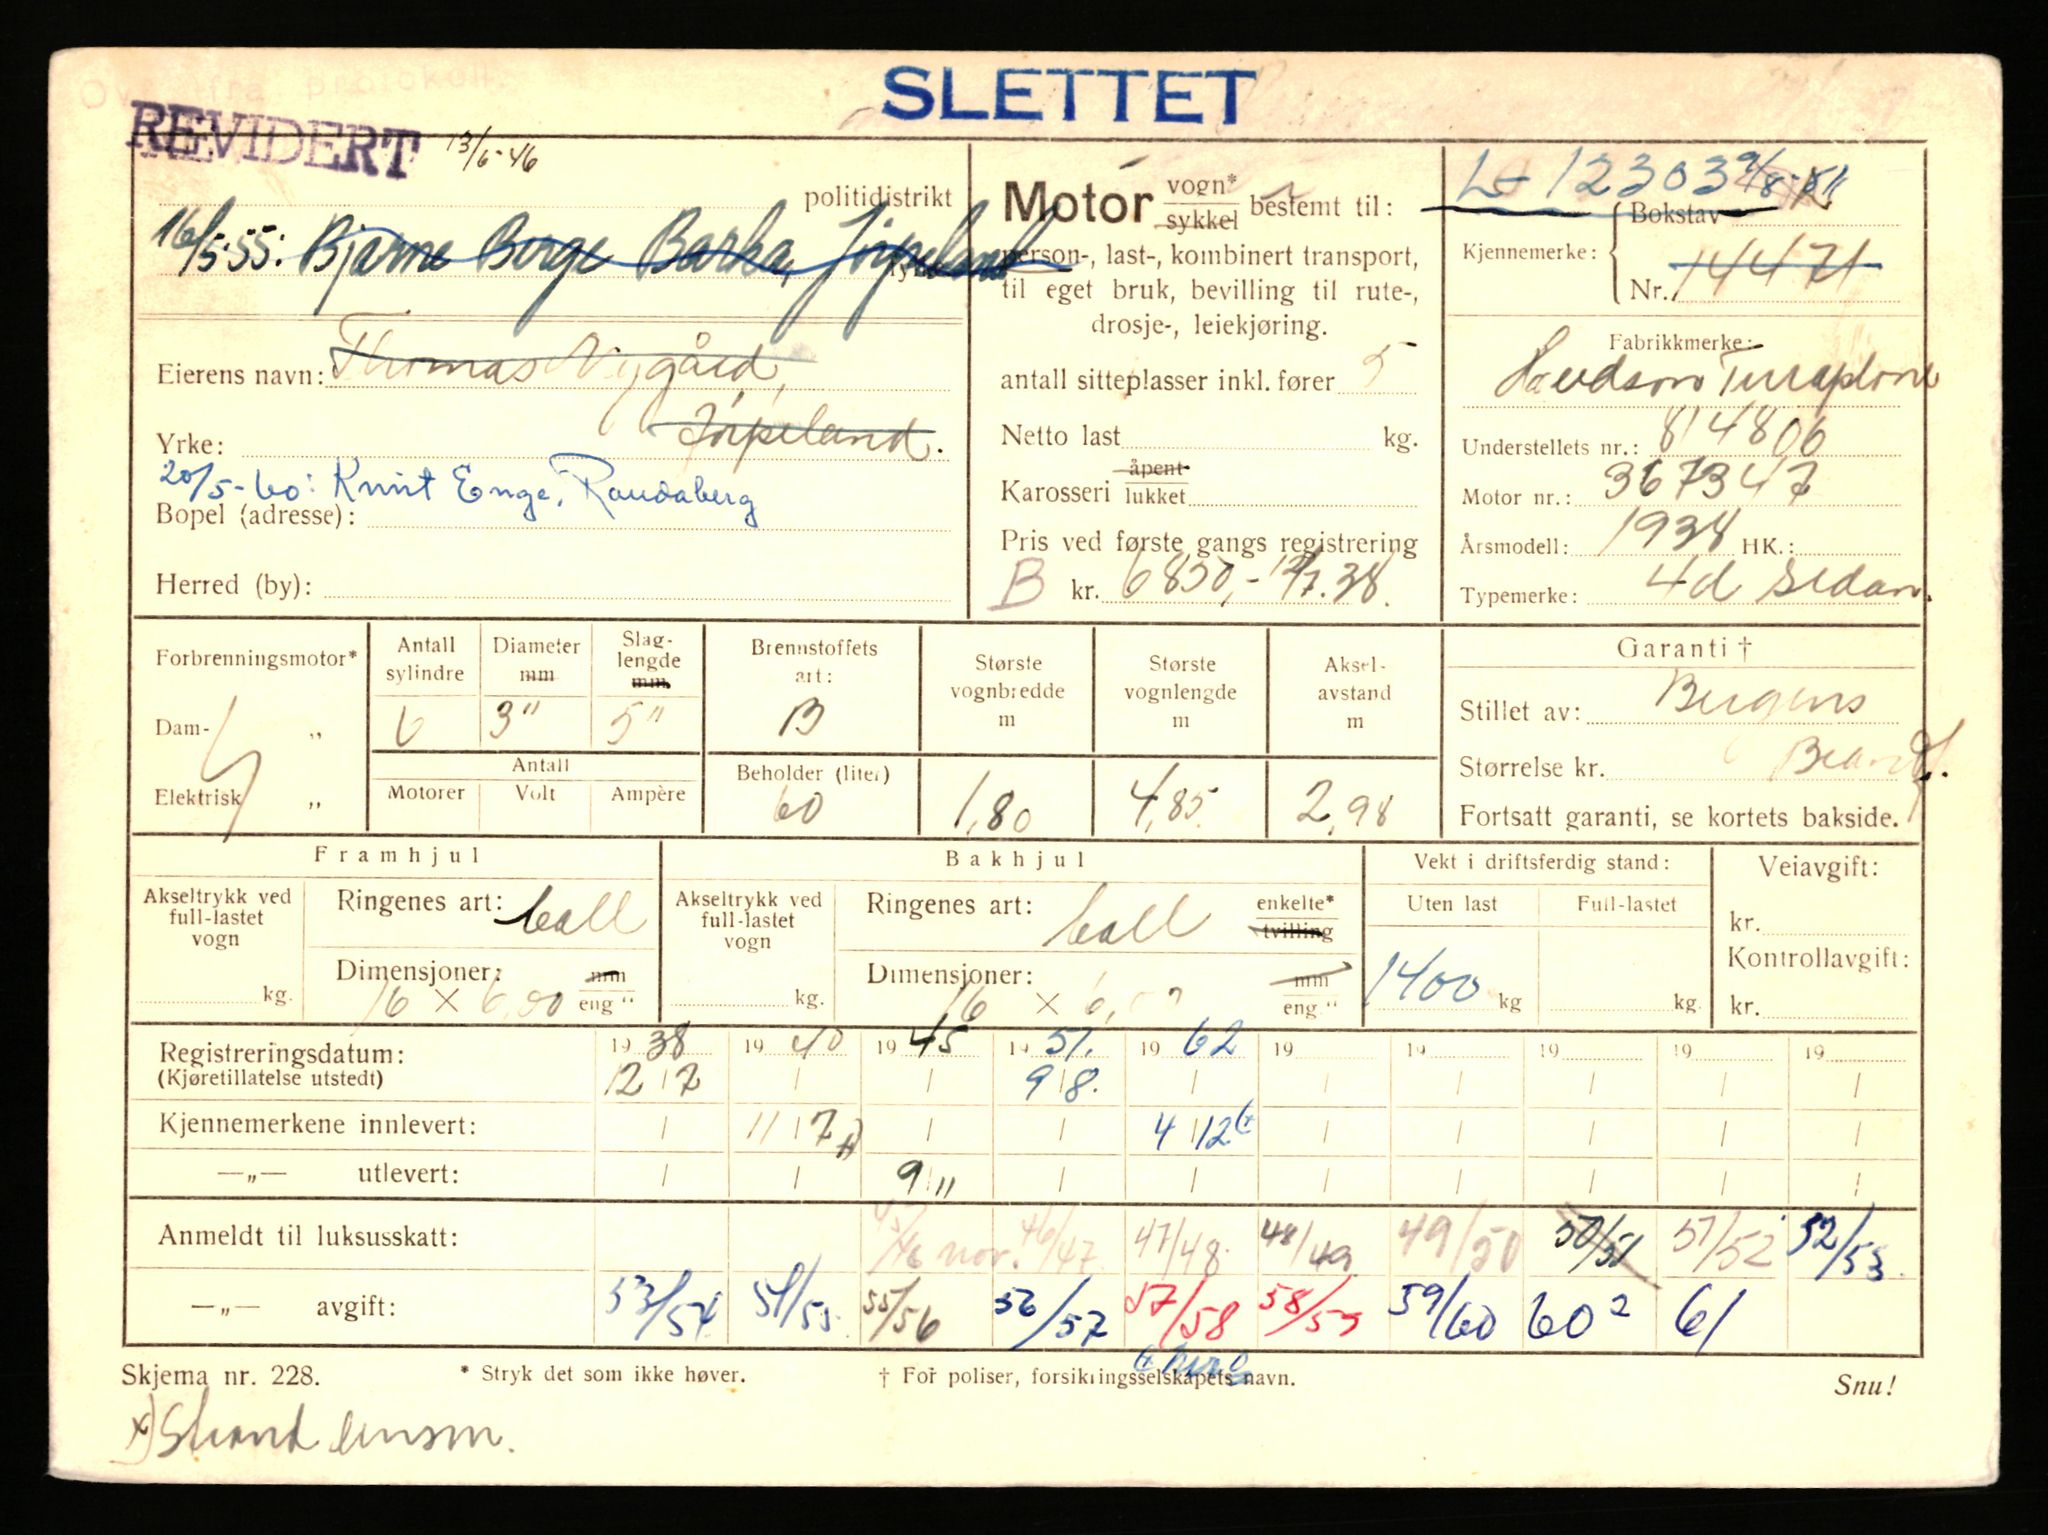 SLETTET
Overf. fra protokoll.
REVIDERT 13/6-46
politidistrikt
16/5.55: Bjarne Berge Barka, Jørpeland
Eierens navn: Thomas Nygård,
Jørpeland.
Yrke:
20/5-60: Knut Enge, Randaberg
Bopel (adresse):
Herred (by):
Motor vogn* sykkel bestemt til:
person-, last-, kombinert transport,
til eget bruk, bevilling til rute-,
drosje-, leiekjøring.
antall sitteplasser inkl. fører 5
Netto last kg.
Karosseri åpent lukket
Pris ved første gangs registrering
B kr. 6850,- 12/7.38.
L-12303 9/8-51
Bokstav
Kjennemerke:
Nr. 14471
Fabrikkmerke:
Hudson Terraplane
Understellets nr.: 814806
Motor nr.: 367347
Årsmodell: 1938 HK.:
Typemerke: 4d Sedan.
Forbrenningsmotor*
Dam- „
Elektrisk „
Antall sylindre
Diameter mm
Slag-lengde mm
6 3" 5"
Antall
Motorer Volt Ampère
Brennstoffets art:
B
Beholder (liter)
60
Største vognbredde m
1,80
Største vognlengde m
4,85
Aksel-avstand m
2,98
Garanti †
Stillet av: Bergens
Størrelse kr. Brandf.
Fortsatt garanti, se kortets bakside.
Framhjul
Akseltrykk ved full-lastet vogn
kg.
Ringenes art: ball
Dimensjoner: mm
16 x 6,00 eng "
Bakhjul
Akseltrykk ved full-lastet vogn
kg.
Ringenes art: ball enkelte* tvilling
Dimensjoner: mm
16 x 6,00 eng "
Vekt i driftsferdig stand:
Uten last Full-lastet
1400 kg kg.
Veiavgift:
kr.
Kontrollavgift:
kr.
Registreringsdatum: 1938 1940 1945 1951. 1962 19 19 19 19 19
(Kjøretillatelse utstedt) 12/7 9/8.
Kjennemerkene innlevert: 11/7 x) 4/12
—„— utlevert: 9/11
Anmeldt til luksusskatt: 45/46 nov. 46/47 47/48 48/49 49/50 50/51 51/52 52/53
—„— avgift: 53/54 54/55 55/56 56/57 57/58 58/59 59/60 60² 61
Skjema nr. 228.
* Stryk det som ikke høver.
† For poliser, forsikringsselskapets navn.
Snu!
x) Strand lensm.